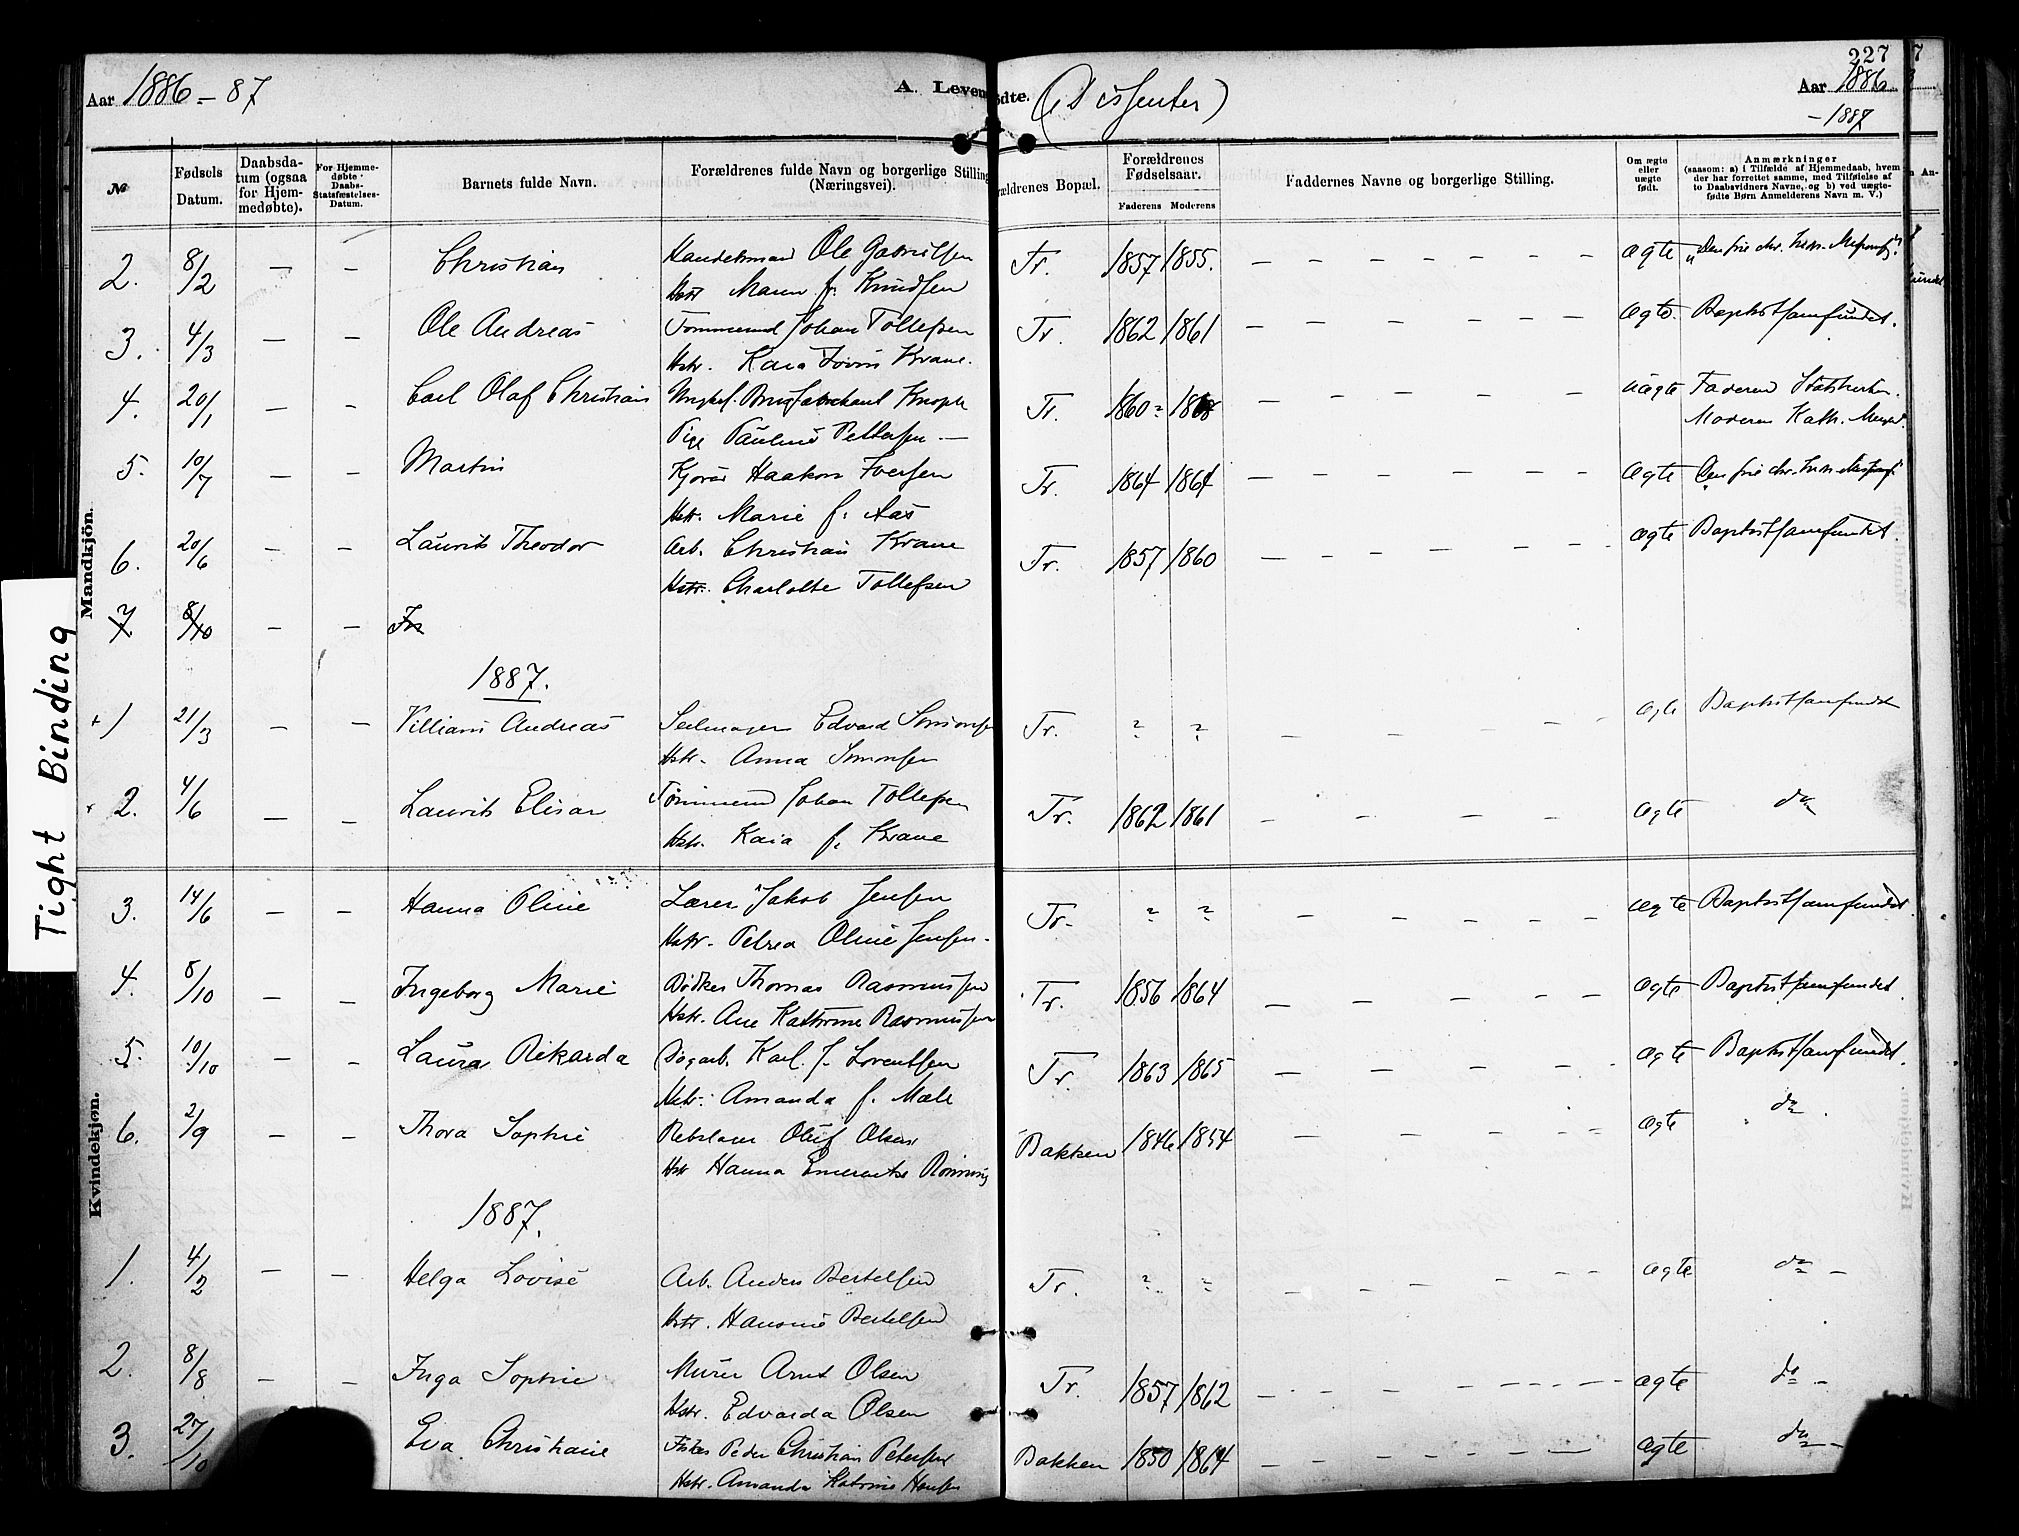 227
Aar 1886-87
A. Levende
ødte. (Dissenter)
Aar 1886
-1887
№
Fødsels Datum.
Daabsdatum (ogsaa for Hjemmedøbte).
For Hjemmedøbte Daabs-Statsfæstelses-Datum.
Barnets fulde Navn.
Forældrenes fulde Navn og borgerlige Stilling (Næringsvei).
ældrenes Bopæl.
Forældrenes Fødselsaar.
Faderens Moderens
Faddernes Navne og borgerlige Stilling.
Om ægte eller uægte født.
Anmærkninger
(saasom: a) i Tilfælde af Hjemmedaab, hvem der har forrettet samme, med Tilføielse af to Daabsvidners Navne, og b) ved uægtefødte Børn Anmelderens Navn m. V.)
Mandkjön.
Tight Binding
2. 8/2 — — Christian Handelsmand Ole Gabrielsen Tr. 1857 1855. ægte "Den frie chr. luth.
Hstr Maren f. Knudsen
3. 4/3 — — Ole Andreas Tømmermd Johan Tollefsen Tr. 1862 1861 ægte. Baptistsamfundet.
Hstr. Kaia Krane.
4. 20/1 — — Carl Olaf Christian Ungkarl. Tr. 1860 uægte Faderen Statskirken.
Pige Pauline Pettersen — Moderen Kath.
5. 10/7 — — Martin Haakon Iversen Tr. 1864 1864 ægte Den frie chr. luth.
Hstr. Marie f. Aas
6. 20/6 — — Laurits Theodor Arb. Christian Krane Tr. 1857 1860 ægte Baptistsamfundet.
Hstr. Charlotte Tollefsen
7 8/10 — —
1887.
+ 1 21/3 — — Villiam Andreas Seilmager Edvard Simonsen Tr. ? ? ægte Baptistsamfundet
Hstr. Anna Simonsen
2. 4/6 — — Laurits Elisar Tømmermd Johan Tollefsen Tr. 1862 1861 ægte do
Hstr. Kaia f. Krane
Kvindekjøn.
3. 14/6 — — Hanna Oline Lærer Jakob Jensen Tr. ? ? ægte Baptistsamfundet
Hstr. Petrea Oline Jensen.
4. 8/10 — — Ingeborg Marie Bødker Thomas Rasmussen Tr. 1856 1864 ægte Baptistsamfundet
Hstr. Ane Kathrine Rasmussen
5. 10/10 — — Laura Rikarda Karl J. Lorentsen Tr. 1863 1865 ægte Baptistsamfundet.
Hstr. Amanda f. Mæle
6. 2/9 — — Thora Sophie Rebslager Oluf Olsen Bakken 1846 1854 ægte do
Hstr Hanna Emerentse Rønning
1887.
1. 4/2 — — Helga Lovise Arb. Anders Bertelsen Tr. ? ? ægte do —
Hstr. Hansine Bertelsen
2. 8/8 — — Inga Sophie Murer Arnt Olsen Tr. 1857 1862 ægte do —
Hstr. Edvarda Olsen
3. 27/10 Eva Christiane Fisker Peder Christian Petersen Bakken 1850 1864 ægte do —
Hstr. Amanda Katrine Hansen